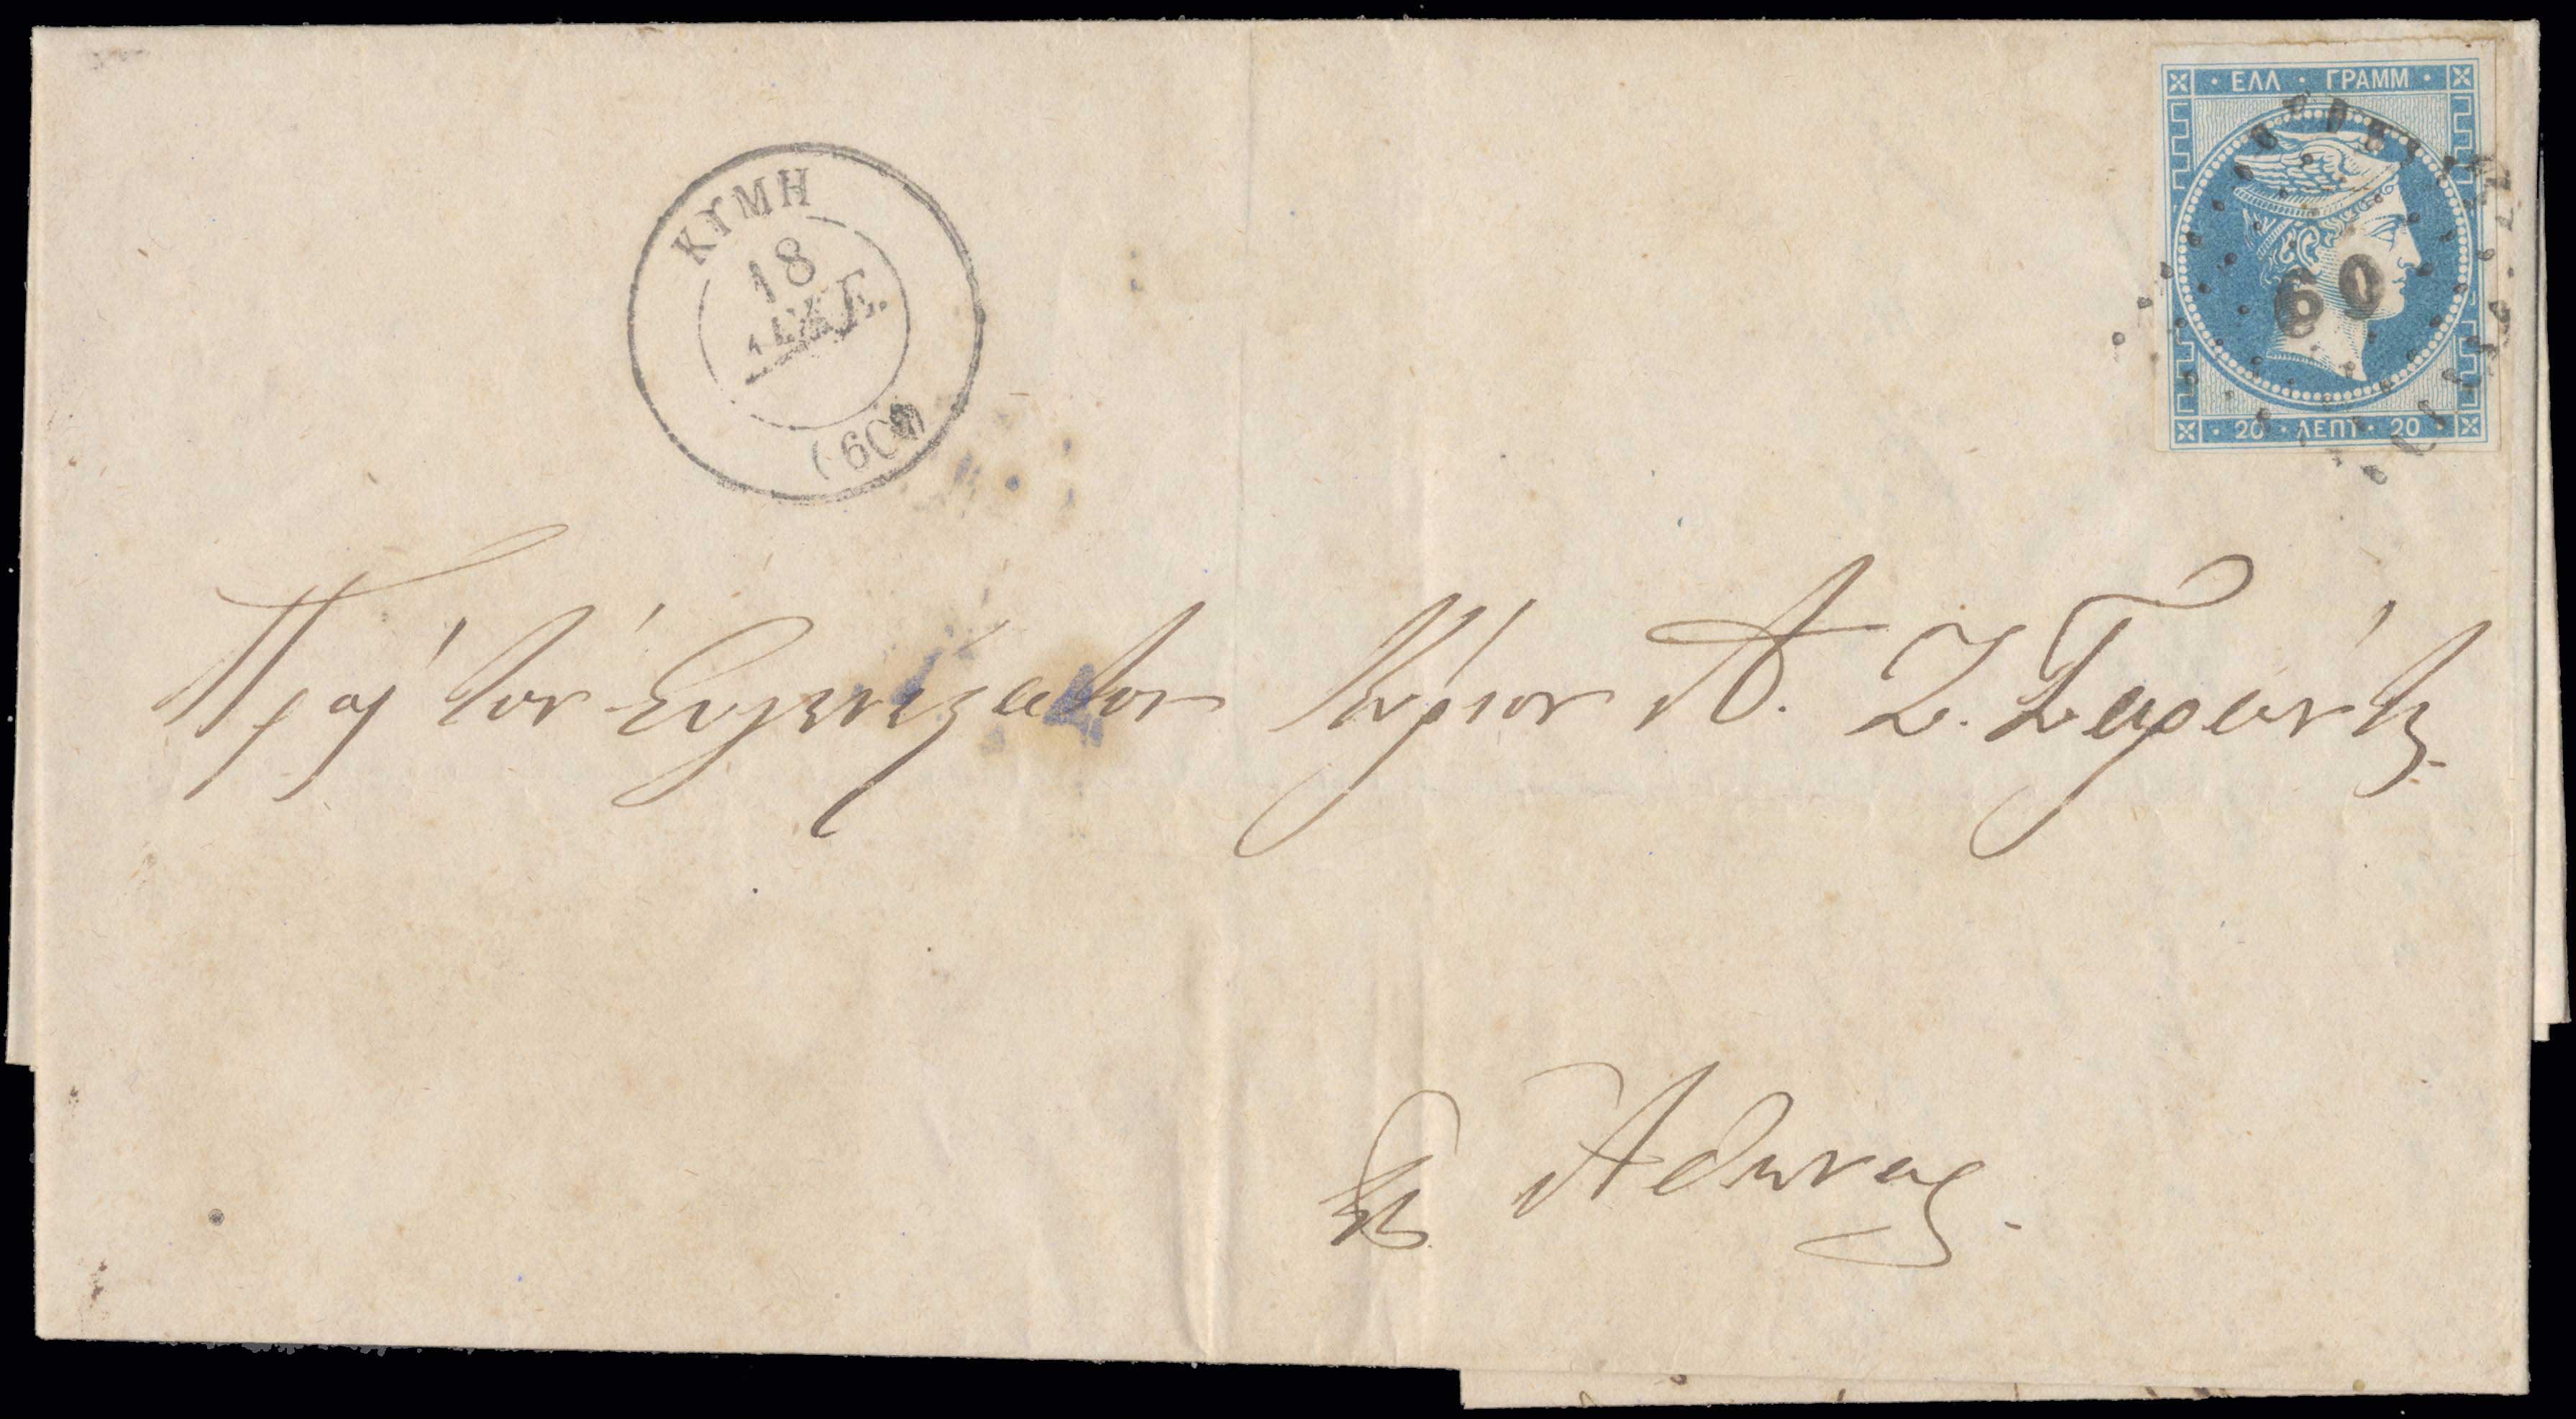 ΕΛΛ · ΓΡΑΜΜ
60
20 · ΛΕΠΤ · 20
ΚΥΜΗ
18
(60)
Πρὸς τὸν Εὐγενέστατον Κύριον Α. Ζ.
Εἰς Ἀθήνας.